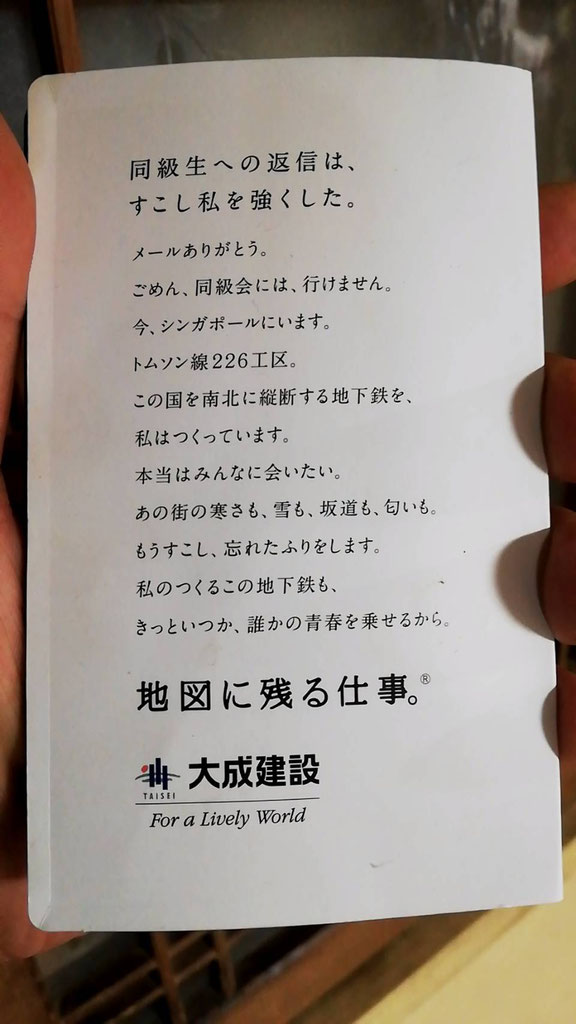 同級生への返信は、
すこし私を強くした。
メールありがとう。
ごめん、同級会には、行けません。
今、シンガポールにいます。
トムソン線226工区。
この国を南北に縦断する地下鉄を、
私はつくっています。
本当はみんなに会いたい。
あの街の寒さも、雪も、坂道も、匂いも。
もうすこし、忘れたふりをします。
私のつくるこの地下鉄も、
きっといつか、誰かの青春を乗せるから。
地図に残る仕事。®
TAISEI 大成建設
For a Lively World